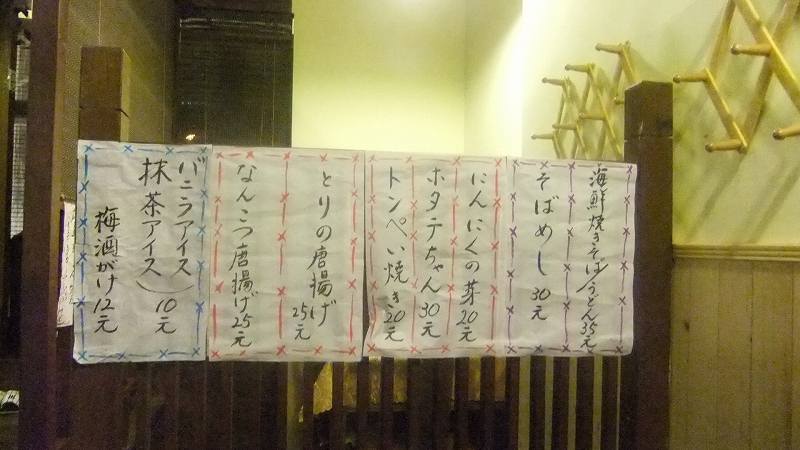 海鮮焼きそば/うどん35元
そばめし 30元
にんにくの芽20元
ホタテちゃん30元
トンペい焼き20元
とりの唐揚げ25元
なんこつ唐揚げ25元
バニラアイス
抹茶アイス)10元
梅酒がけ12元